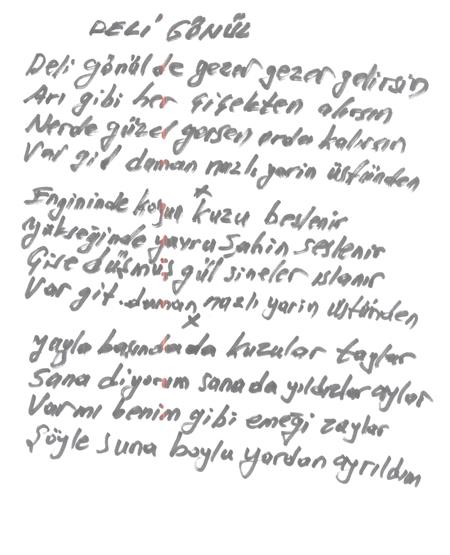 DELİ GÖNÜL
Deli gönül de gezer gezer gelirsin
Arı gibi her çiçekten alırsın
Nerde güzel görsen orda kalırsın
Var git duman nazlı yarin üstünden
x
Engininde koyun kuzu beslenir
yükseğinde yavru şahin seslenir
Çise düşmüş gül sineler ıslanır
Var git duman nazlı yarin üstünden
x
yayla başında da kuzular taylar
Sana diyorum sana da yıldızlar aylar
Var mı benim gibi emeği zaylar
Şöyle suna boylu yardan ayrıldım